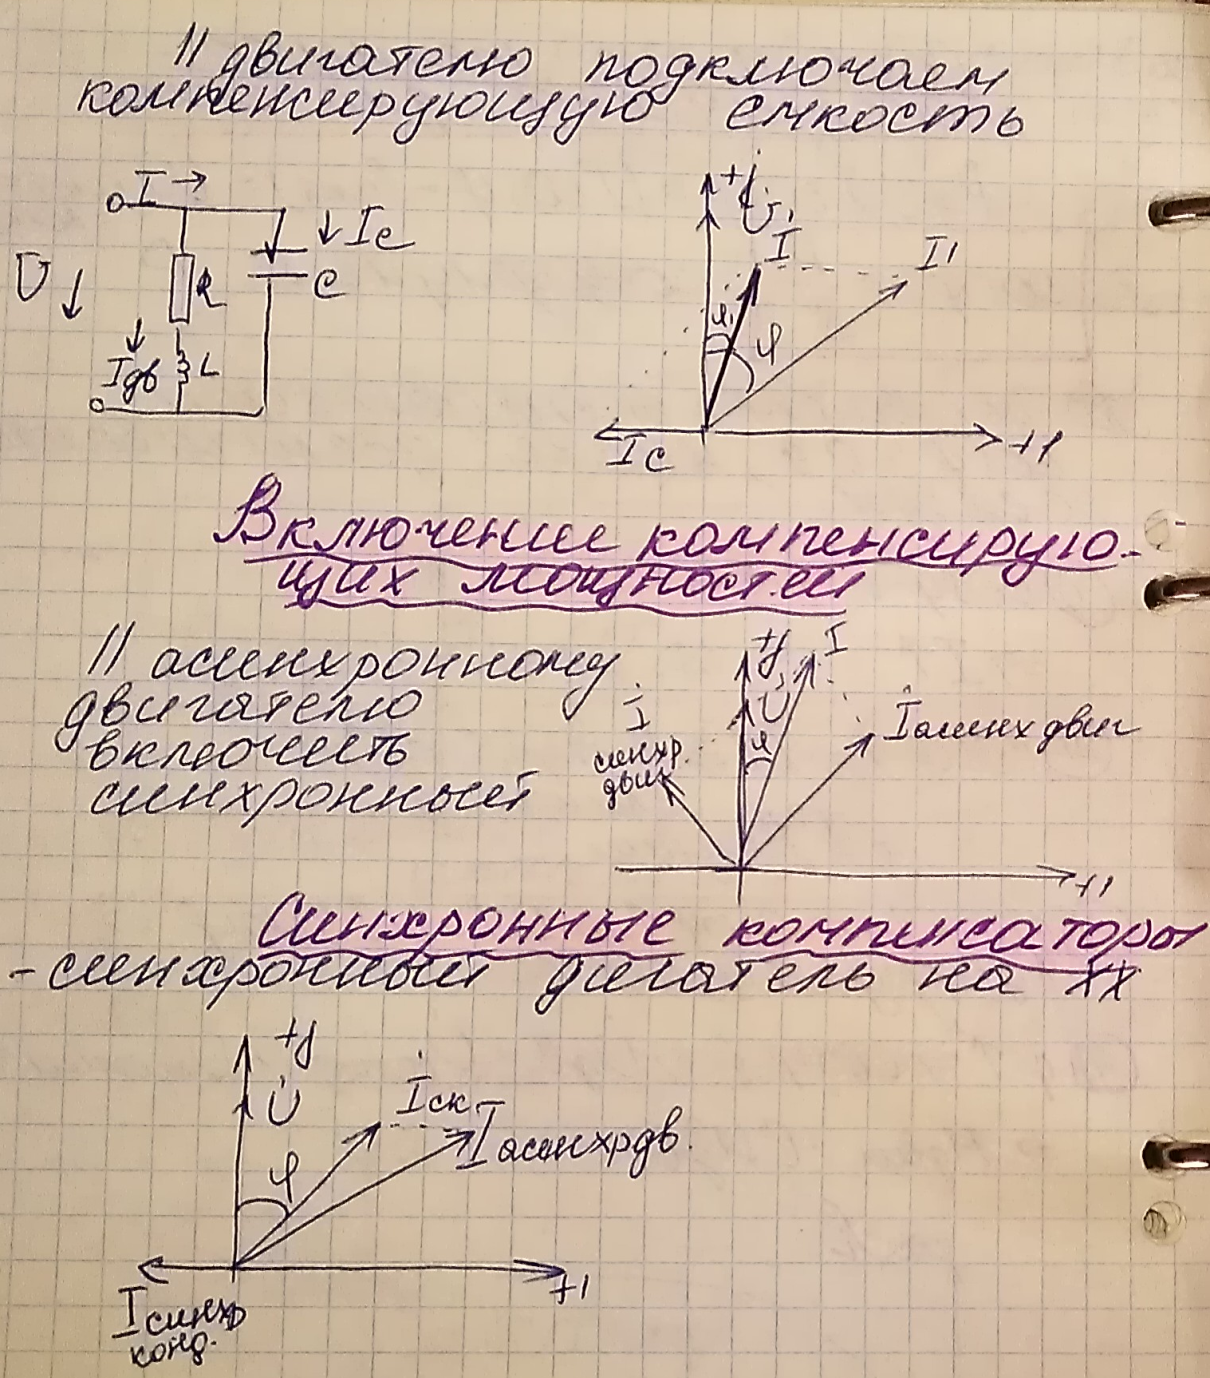 || двигателю подключаем
компенсирующую емкость
I →
↓ Ic
U ↓
R
C
↓
Iдв
L
+j
U̇
I
I1
φ1
φ
Ic
+1
Включение компенсирую-
щих мощностей
|| асинхронному
двигателю
включить
синхронный
+j
I
U̇
İ
синхр.
двиг
φ
İасинх двиг
+1
Синхронные компенсаторы
- синхронный дигатель на хх
+j
U̇
İск
Iасинхрдв.
φ
+1
Iсинхр
конд.